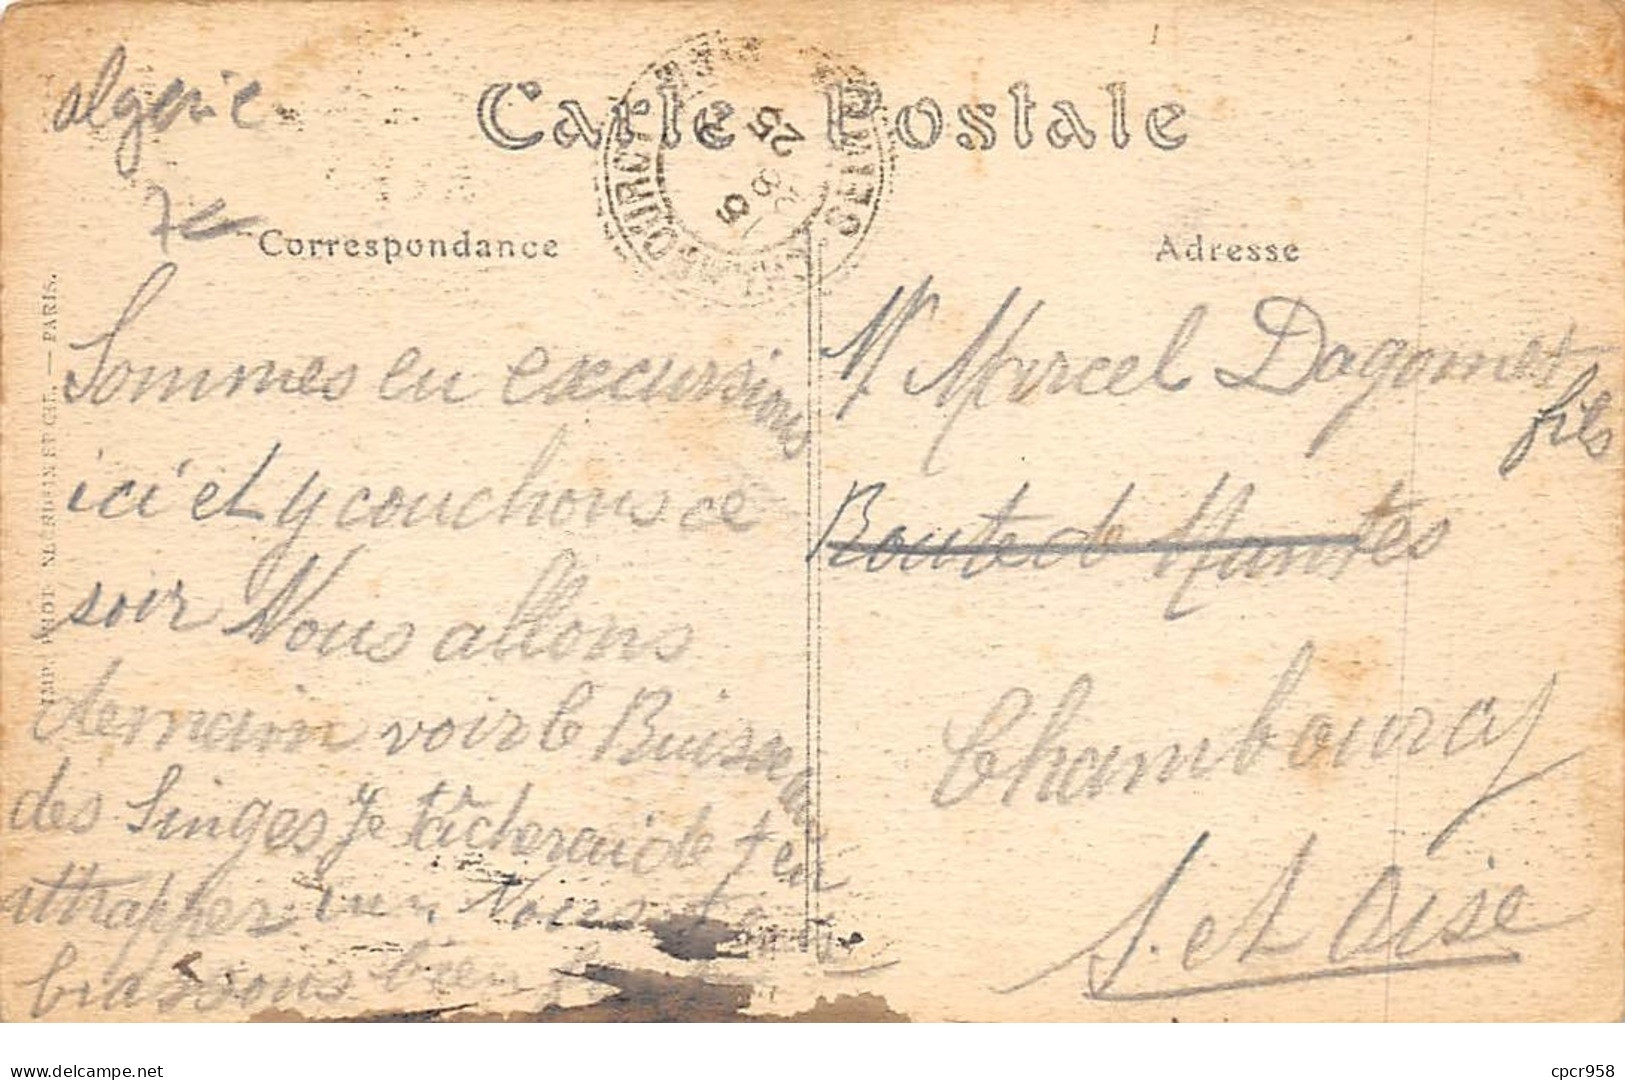 algerie
7
Carte Postale
Correspondance
Adresse
PARIS.
Sommes en excursions
ici et y couchons ce
soir Nous allons
demain voir le Buisseau
des Singes Je tâcherai de t'en
attrapper un Nous t'em
brassons bien
Mr Marcel Dagomet
fils
Route de Mantes
Chambourcy
S. et Oise
25
cpcr958